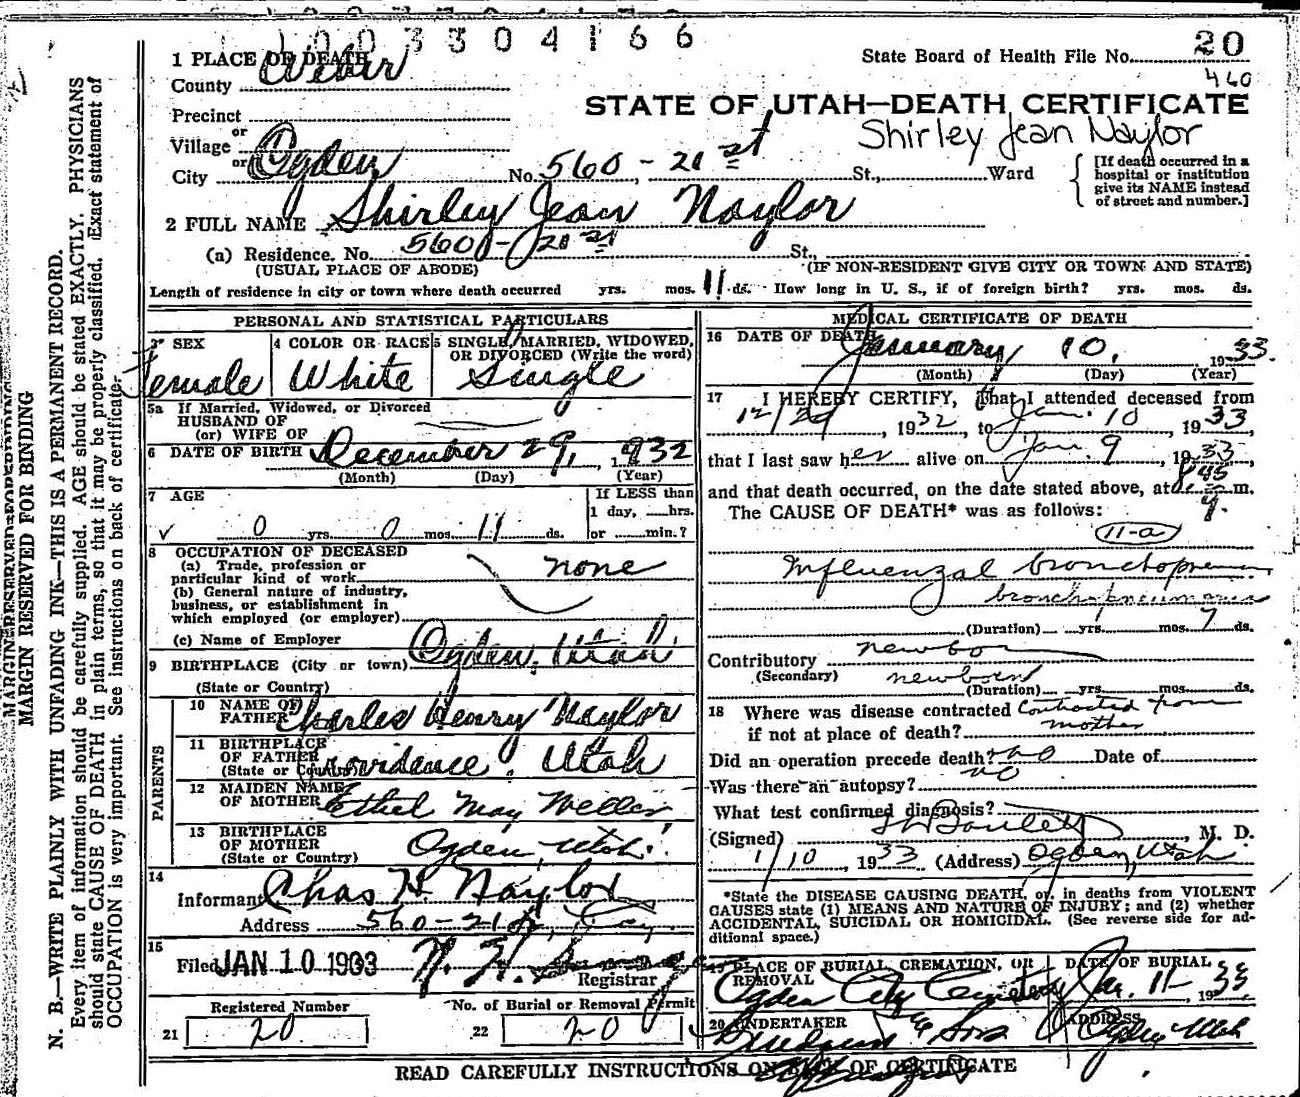 1003304166
1 PLACE OF DEATH
State Board of Health File No. 20
County Weber
460
STATE OF UTAH—DEATH CERTIFICATE
Precinct
Shirley Jean Naylor
or
Village
or
City Ogden No. 560 - 21st St., Ward
[If death occurred in a hospital or institution give its NAME instead of street and number.]
2 FULL NAME Shirley Jean Naylor
(a) Residence. No. 560 - 21st St.,
(USUAL PLACE OF ABODE) (IF NON-RESIDENT GIVE CITY OR TOWN AND STATE)
Length of residence in city or town where death occurred yrs. mos. 11 ds. How long in U. S., if of foreign birth? yrs. mos. ds.
PERSONAL AND STATISTICAL PARTICULARS
3 SEX
Female
4 COLOR OR RACE
White
5 SINGLE, MARRIED, WIDOWED, OR DIVORCED (Write the word)
Single
5a If Married, Widowed, or Divorced
HUSBAND OF
(or) WIFE OF
6 DATE OF BIRTH December 29, 1932
(Month) (Day) (Year)
7 AGE
0 yrs. 0 mos. 11 ds.
If LESS than
1 day, hrs.
or min.?
8 OCCUPATION OF DECEASED
(a) Trade, profession or
particular kind of work none
(b) General nature of industry,
business, or establishment in
which employed (or employer)
(c) Name of Employer
9 BIRTHPLACE (City or town) Ogden, Utah
(State or Country)
PARENTS
10 NAME OF FATHER Charles Henry Naylor
11 BIRTHPLACE OF FATHER Providence, Utah
(State or Country)
12 MAIDEN NAME OF MOTHER Ethel May Weller
13 BIRTHPLACE OF MOTHER Ogden, Utah
(State or Country)
14
Informant Chas H. Naylor
Address 560 - 21st,
15
Filed JAN 10 1933
Registrar
Registered Number
21 20
No. of Burial or Removal Permit
22 20
MEDICAL CERTIFICATE OF DEATH
16 DATE OF DEATH January 10, 1933
(Month) (Day) (Year)
17 I HEREBY CERTIFY, That I attended deceased from
12/29, 1932, to Jan. 10, 1933
that I last saw her alive on Jan 9, 1933,
and that death occurred, on the date stated above, at 8 45 m.
The CAUSE OF DEATH* was as follows:
11-a
Influenzal bronchopneu
bronchopneumonia
(Duration) yrs. mos. 7 ds.
Contributory newborn
(Secondary) newborn
(Duration) yrs. mos. ds.
18 Where was disease contracted Contracted from
if not at place of death? mother
Did an operation precede death? no Date of
Was there an autopsy? no
What test confirmed diagnosis?
(Signed) , M. D.
1/10, 1933 (Address) Ogden, Utah
*State the DISEASE CAUSING DEATH, or, in deaths from VIOLENT
CAUSES state (1) MEANS AND NATURE OF INJURY; and (2) whether
ACCIDENTAL, SUICIDAL OR HOMICIDAL. (See reverse side for ad-
ditional space.)
19 PLACE OF BURIAL, CREMATION, OR REMOVAL
Ogden City Cemetery
DATE OF BURIAL
Jan. 11, 1933
20 UNDERTAKER
& Sons
ADDRESS
Ogden Utah
READ CAREFULLY INSTRUCTIONS ON BACK OF CERTIFICATE
MARGIN RESERVED FOR BINDING
N. B.—WRITE PLAINLY WITH UNFADING INK—THIS IS A PERMANENT RECORD.
Every item of information should be carefully supplied. AGE should be stated EXACTLY. PHYSICIANS
should state CAUSE OF DEATH in plain terms, so that it may be properly classified. Exact statement of
OCCUPATION is very important. See instructions on back of certificate.